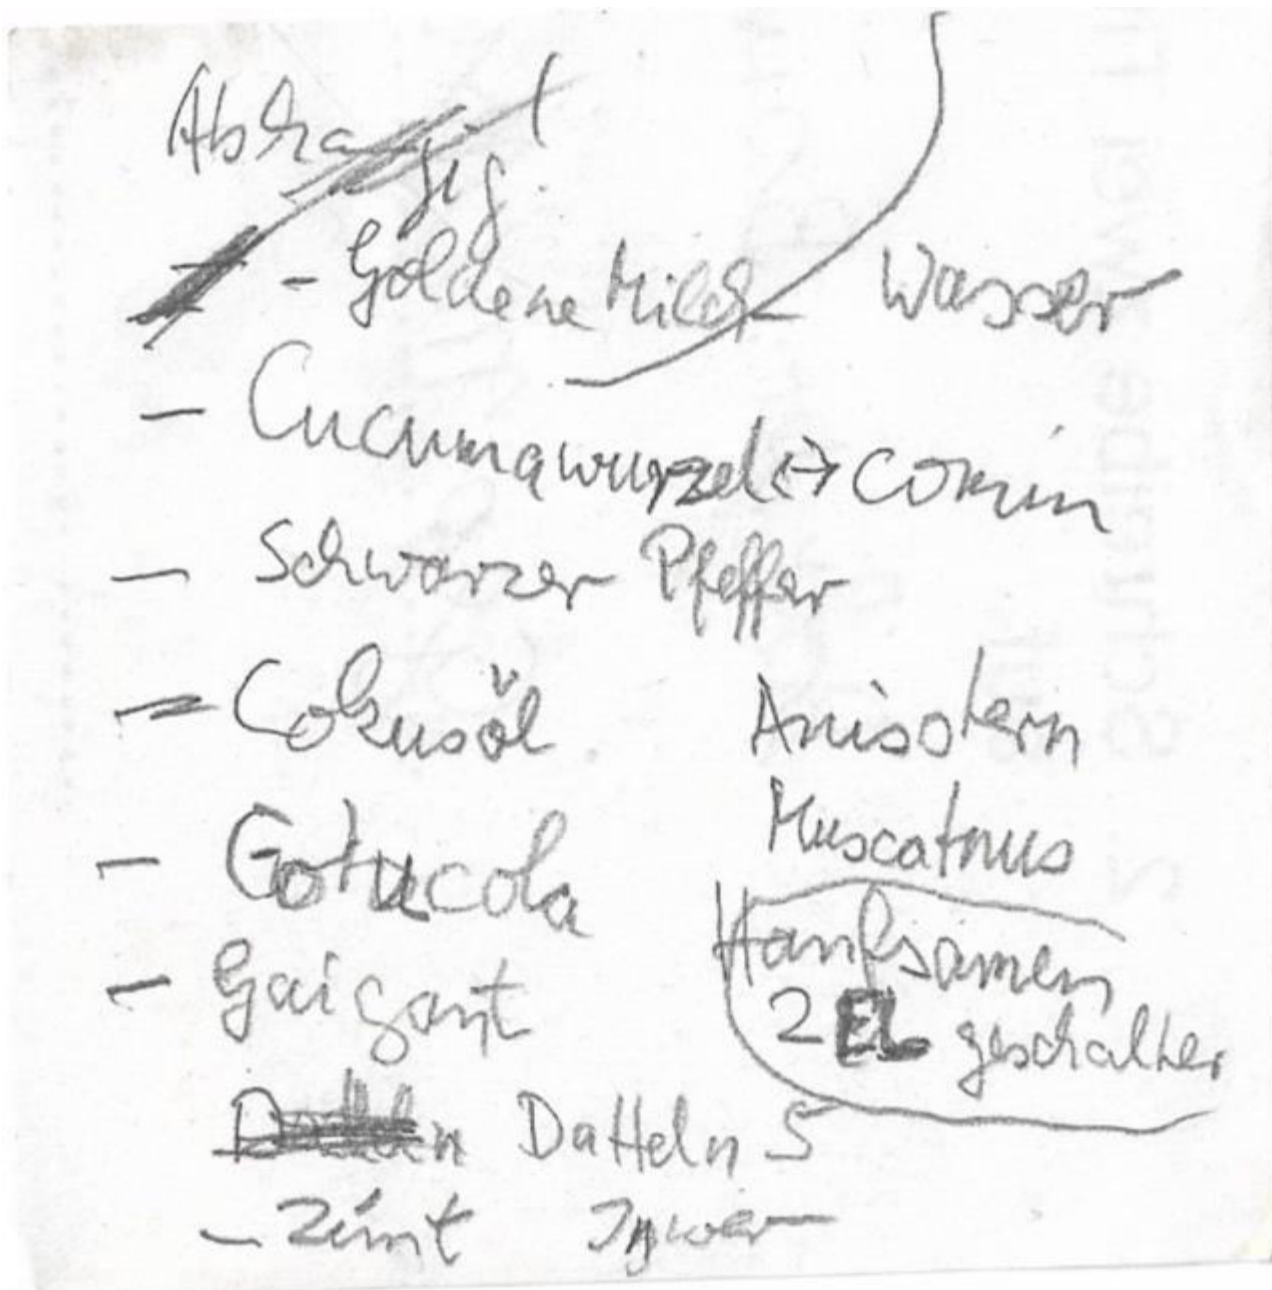 - Goldene Milch
Wasser
- Cucumawurzel <-> Comin
- Schwarzer Pfeffer
- Cokusöl
Anisstern
- Gotucola
Muscatnus
- Gaigant
Hanfsamen
2 EL geschalter
Datteln 5
- Zimt Ingwer